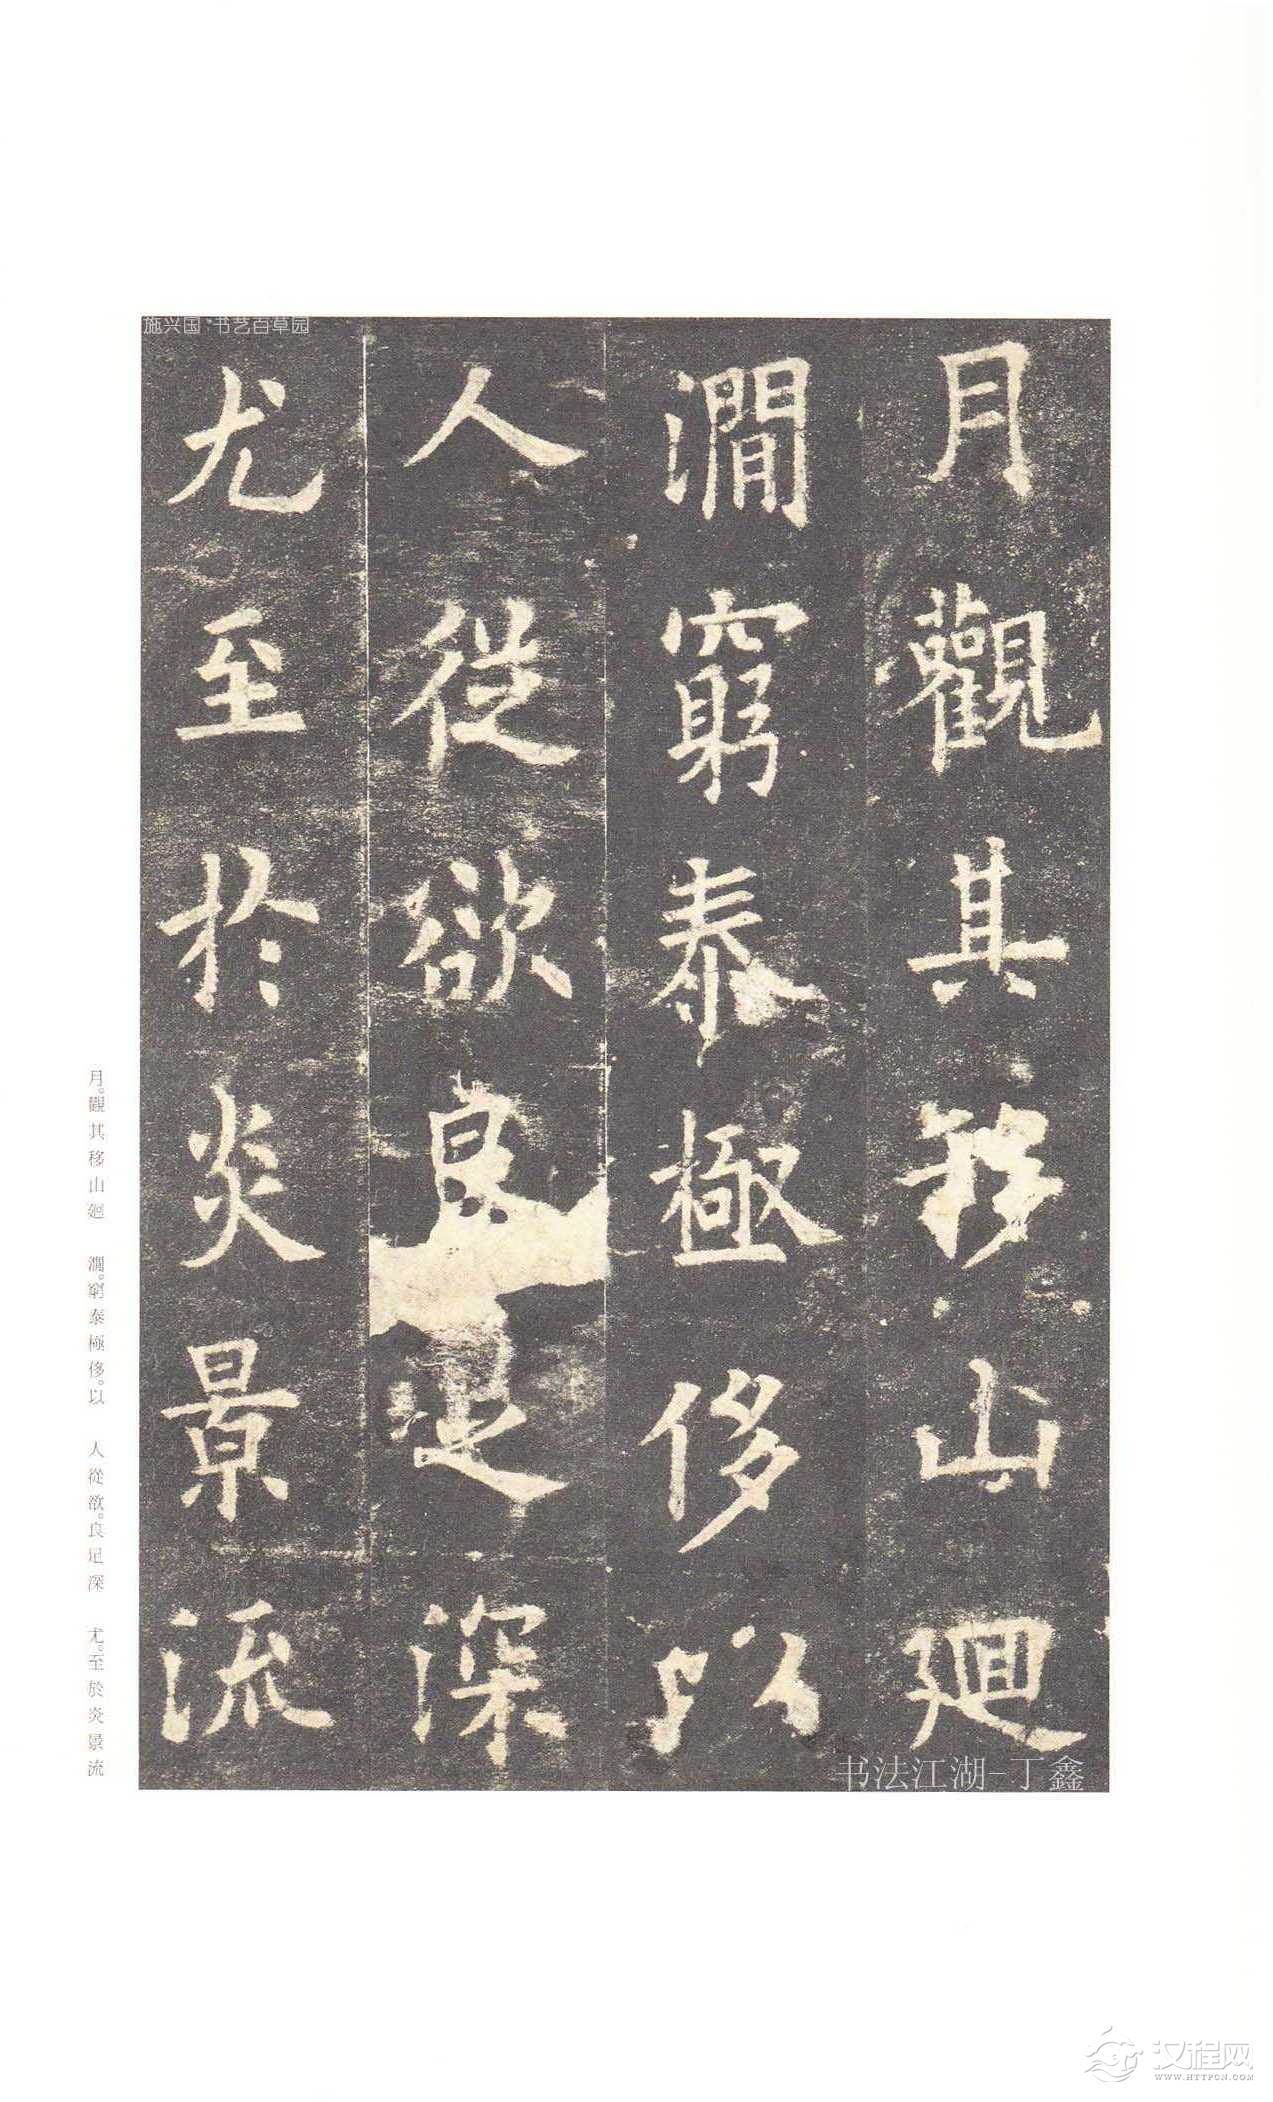 施兴国·书艺百草园
月觀其移山廻
澗窮泰極侈以
人從欲良足深
尤至於炎景流
书法江湖-丁鑫
月。觀其移山廻 澗。窮泰極侈。以 人從欲。良足深 尤。至於炎景流
汉程网
WWW.HTTPCN.COM